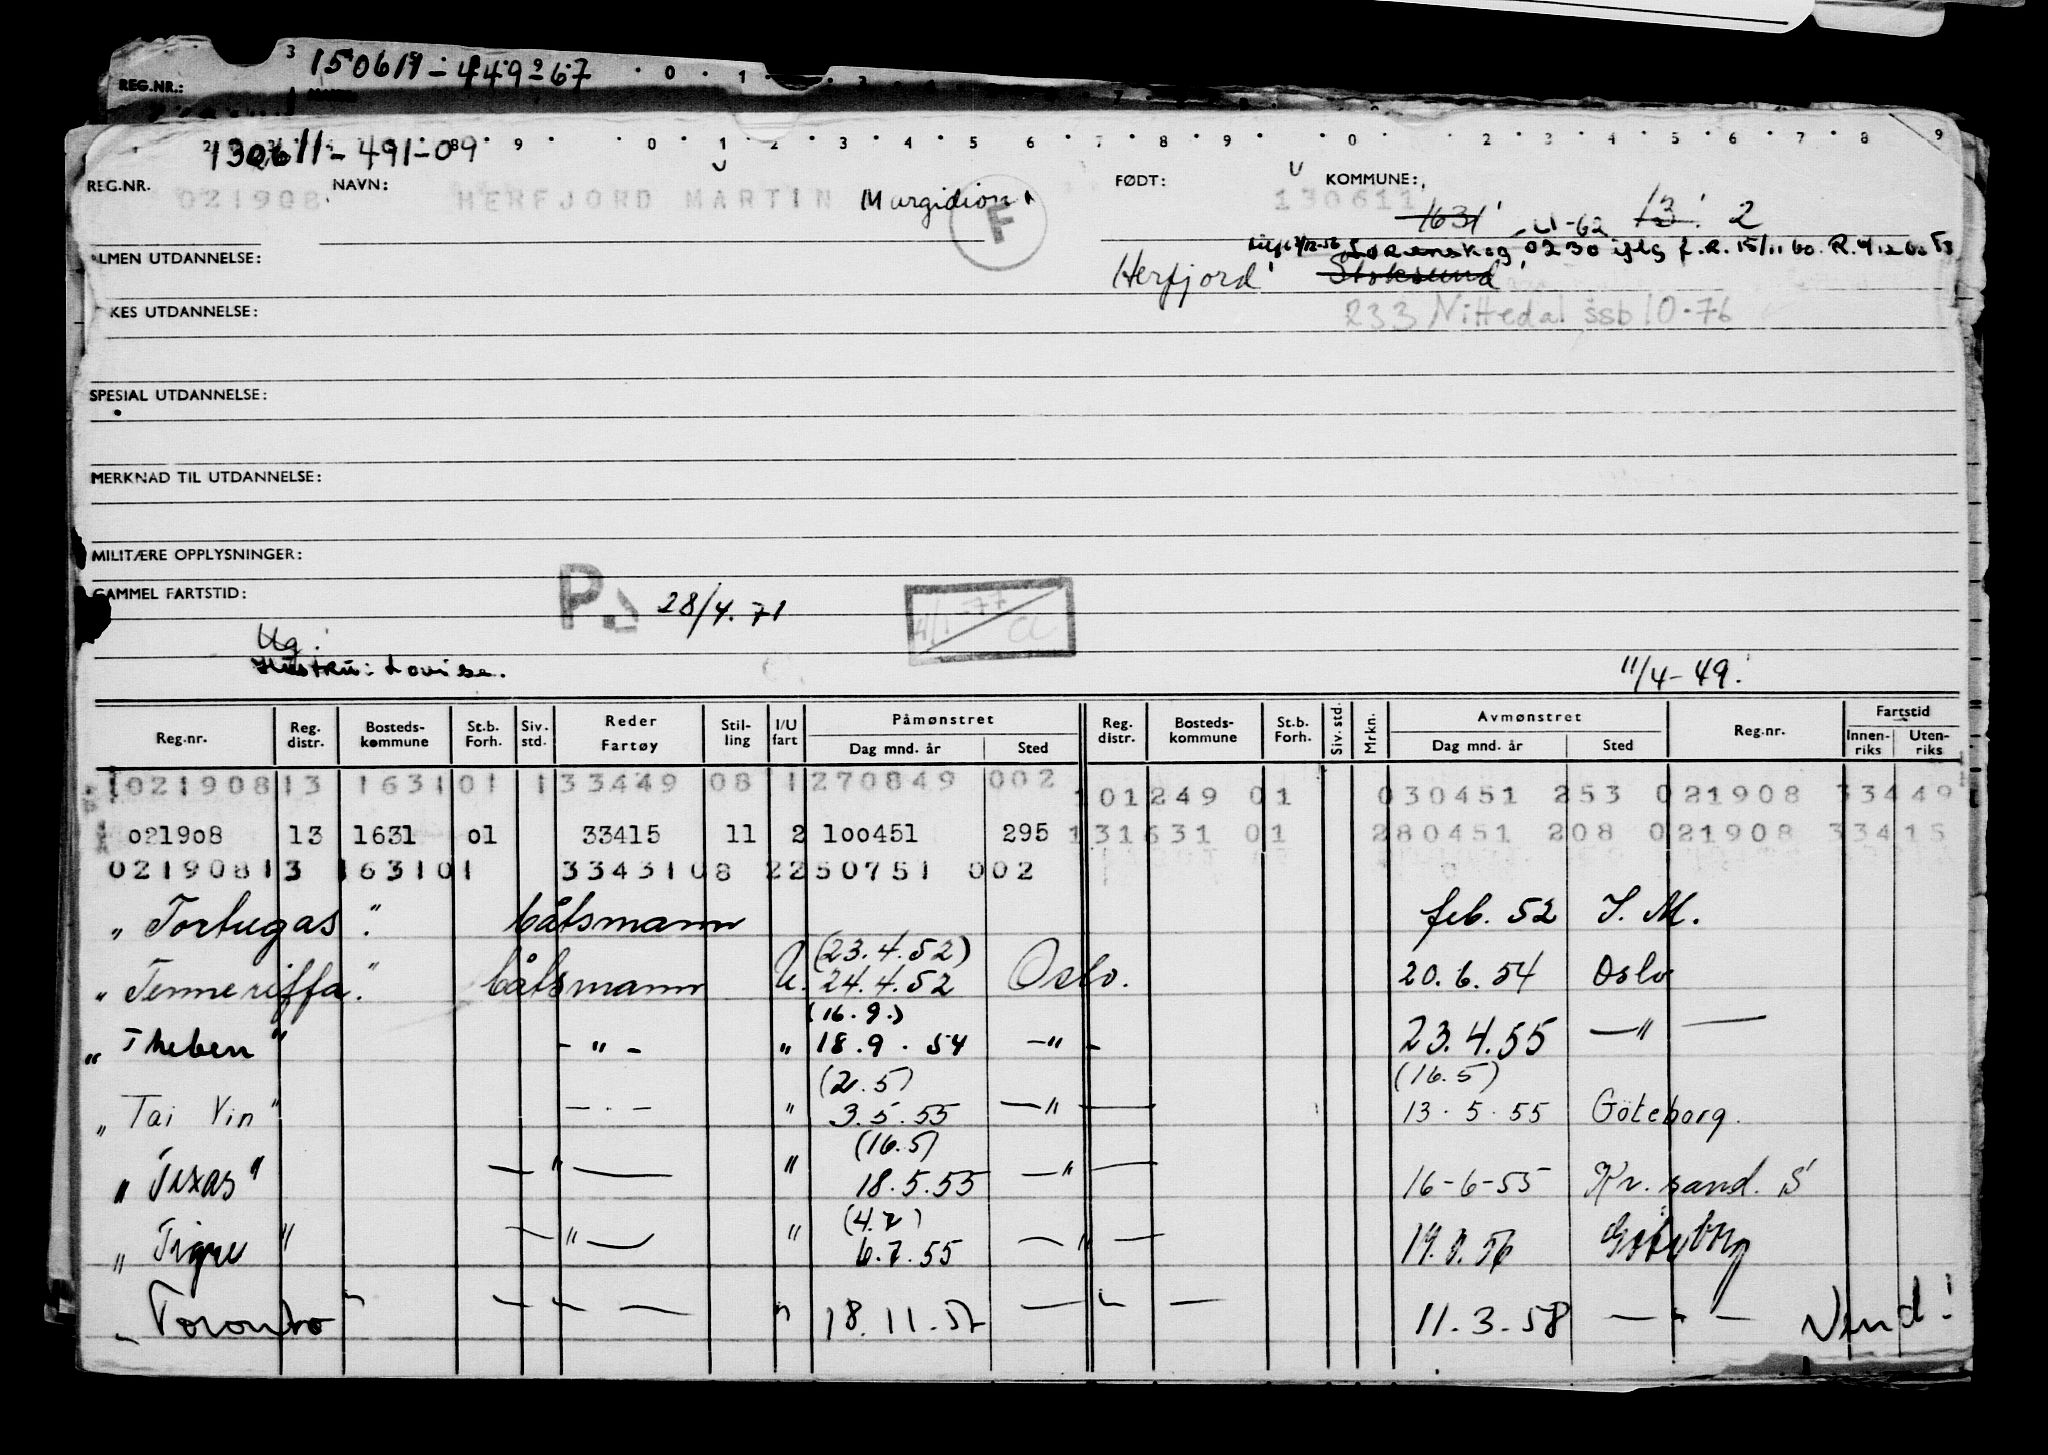 REG.NR.: 150611-449-67
130611-491-09
REG.NR. 021908 NAVN: HERFJORD MARTIN Margidion F FØDT: 130611 KOMMUNE: 1631 U-62 13 2
Lørenskog, 0230 iflg f.R. 15/11 60. R.
ALMEN UTDANNELSE: Herfjord Stoksund
KES UTDANNELSE: 233 Nittedal ssb 10-76
SPESIAL UTDANNELSE:
MERKNAD TIL UTDANNELSE:
MILITÆRE OPPLYSNINGER:
GAMMEL FARTSTID: P. 28/4.71 4/1-77
Ug.
Hustru: Lovise. 11/4-49.
Reg.nr. Reg. distr. Bosteds-kommune St.b. Forh. Siv. std. Reder Fartøy Stil-ling I/U fart Påmønstret Dag mnd. år Sted Reg. distr. Bosteds-kommune St.b. Forh. Siv. std. Mrkn. Avmønstret Dag mnd. år Sted Reg.nr. Fartstid Innen-riks Uten-riks
021908 13 1631 01 1 33449 08 1 270849 002 101249 01 030451 253 021908 33449
021908 13 1631 01 33415 11 2 100451 295 131631 01 280451 208 021908 33415
021908 13 1631 01 33431 08 2 250751 002
„ Tortugas " båtsmann feb. 52 S. M.
(23.4.52)
„ Tenneriffa " båtsmann U. 24.4.52 Oslo. 20.6.54 Oslo
(16.9.)
„ Theben " - " - " 18.9.54 - " - 23.4.55 - " -
(2.5) (16.5)
„ Tai Yin " - . - " 3.5.55 - " - 13.5.55 Göteborg.
(16.5)
„ Texas " - " - " 18.5.55 - " - 16-6-55 Kr.sand. S
(4.7)
„ Tigre " - " - " 6.7.55 - " - Göteborg
„ Toronto " - " - " 18.11.57 - " - 11.3.58 - " - Vend!